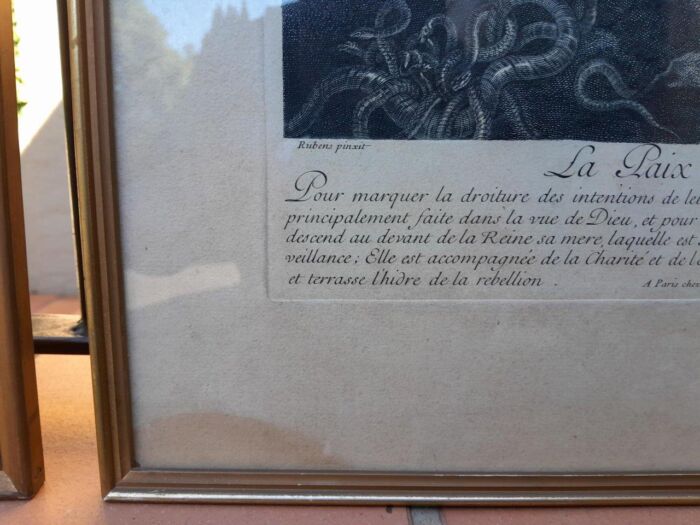 Rubens pinxit
La Paix
Pour marquer la droiture des intentions de
principalement faite dans la vue de Dieu, et pour
descend au devant de la Reine sa mere, laquelle est
veillance; Elle est accompagnée de la Charité et de
et terrasse l'hidre de la rebellion .
A Paris chez